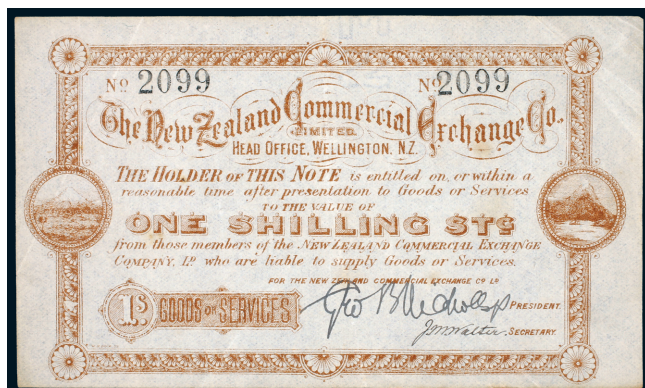 No 2099 No 2099
The New Zealand Commercial Exchange Co.,
LIMITED.
HEAD OFFICE, WELLINGTON. N.Z.
THE HOLDER OF THIS NOTE is entitled on, or within a
reasonable time after presentation to Goods or Services
TO THE VALUE OF
ONE SHILLING STG
from those members of the NEW ZEALAND COMMERCIAL EXCHANGE
COMPANY, LD who are liable to supply Goods or Services.
FOR THE NEW ZEALAND COMMERCIAL EXCHANGE CO LD
Geo B Nicholls PRESIDENT.
1S GOODS OR SERVICES
J.M. Walter, SECRETARY.